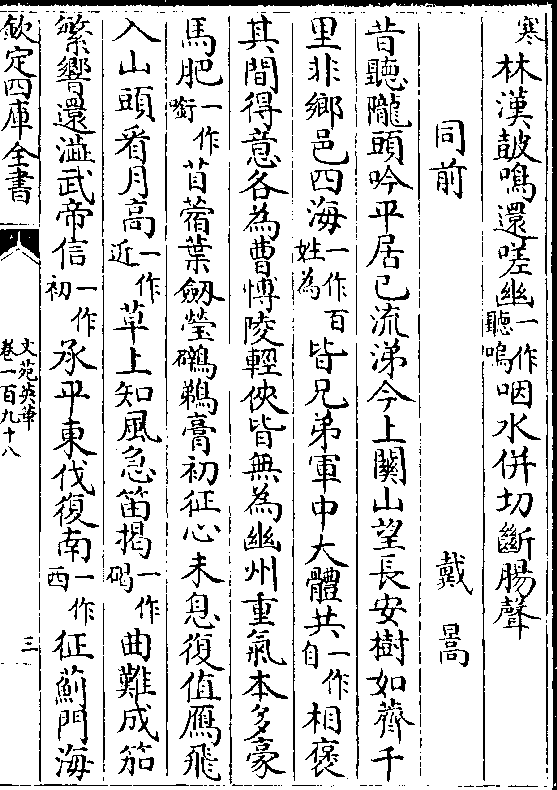 寒林漢皷鳴還嗟幽一作聽嗚咽水併切斷腸聲
同前　戴暠
昔聽隴頭吟平居已流涕今上關山望長安樹如薺千
里非鄉邑四海一作百姓為皆兄弟軍中大體共一作自相褒
其間得意各為曹愽陵輕俠皆無為幽州重氣本多豪
馬肥一作銜苜蓿葉劒瑩鸊鵜膏初征心未息復值鴈飛
入山頭看月高一作近草上知風急笛揭一作碣曲難成笳
繁響還澁武帝信一作初承平東伐復南一作西征薊門海
欽定四庫全書
文苑英華
卷一百九十八
三